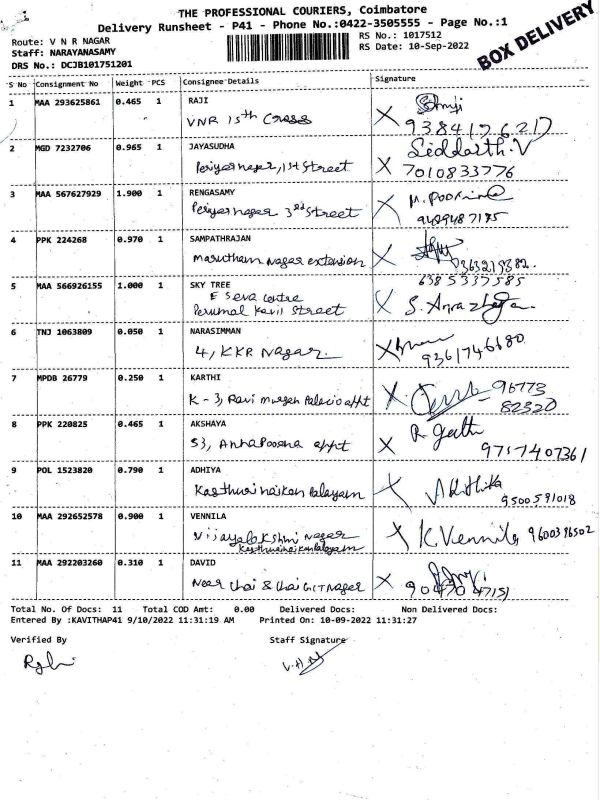 THE PROFESSIONAL COURIERS, Coimbatore
Delivery Runsheet - P41 - Phone No.:0422-3505555 - Page No.:1
BOX DELIVERY
Route: V N R NAGAR
RS No.: 1017512
Staff: NARAYANASAMY
RS Date: 10-Sep-2022
DRS No.: DCJB101751201
S No Consignment No Weight PCS Consignee Details Signature
1 MAA 293625861 0.465 1 RAJI
VNR 15th Cross
9384176217
2 MGD 7232706 0.965 1 JAYASUDHA Siddarth.V
Periyar nagar, 1st Street 7010833776
3 MAA 567627929 1.900 1 RENGASAMY
Periyar nagar 3rd Street 9489487175
4 PPK 224268 0.970 1 SAMPATHRAJAN
Marutham Nagar extension
5 MAA 566926155 1.000 1 SKY TREE 6385337585
E Seva Centre
Perumal Kovil Street
6 TNJ 1063809 0.050 1 NARASIMMAN
4, KKR Nagar. 9361746680
7 MPDB 26779 0.250 1 KARTHI
K - 3, 96773
82320
8 PPK 220825 0.465 1 AKSHAYA
S3, Annapoorna appt
9 POL 1523820 0.790 1 ADHIYA
Kasthurinaiken Palayam 9500591018
10 MAA 292652578 0.900 1 VENNILA K. Vennila 9600396502
Vijayalakshmi Nagar
Kasthurinaikenpalayam
11 MAA 292203260 0.310 1 DAVID
Near Chai & Chai GCT Nagar 9047047151
Total No. Of Docs: 11 Total COD Amt: 0.00 Delivered Docs: Non Delivered Docs:
Entered By :KAVITHAP41 9/10/2022 11:31:19 AM Printed On: 10-09-2022 11:31:27
Verified By Staff Signature